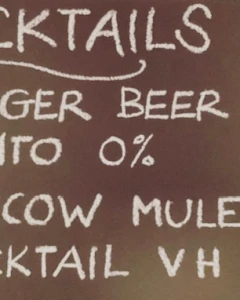 CKTAILS
GER BEER
ITO 0%
COW MULE
KTAIL VH